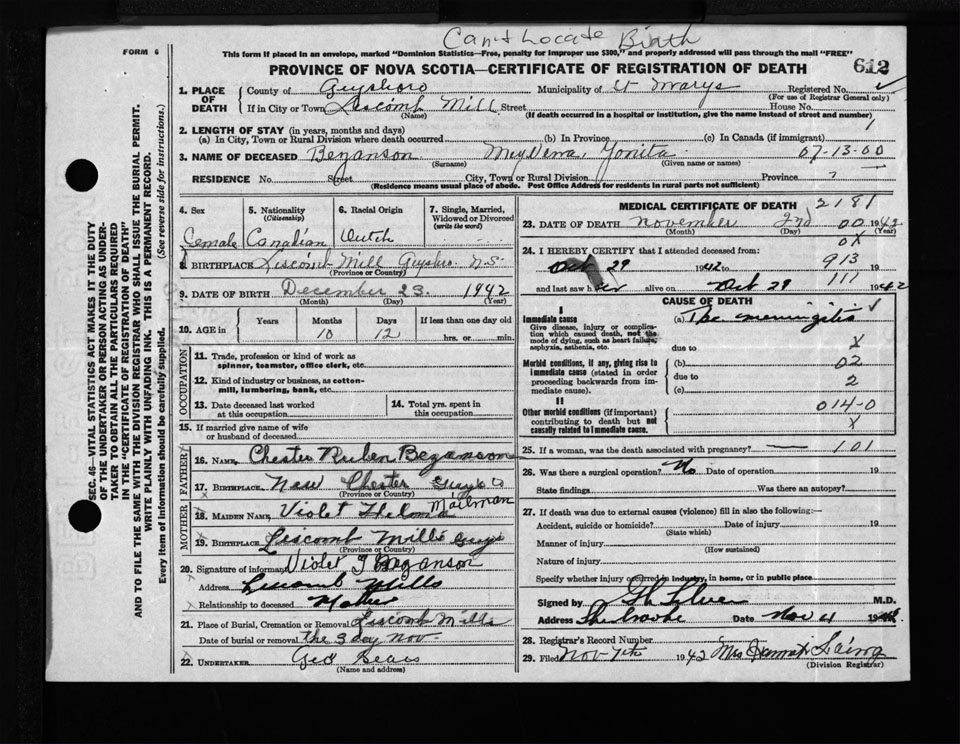 Can't Locate Birth
FORM 6
This form if placed in an envelope, marked "Dominion Statistics—Free, penalty for improper use $300," and properly addressed will pass through the mail "FREE"
612
PROVINCE OF NOVA SCOTIA—CERTIFICATE OF REGISTRATION OF DEATH
1. PLACE OF DEATH
County of Guysboro Municipality of St Marys Registered No.
(For use of Registrar General only)
If in City or Town Liscomb Mill Street House No.
(Name) (If death occurred in a hospital or institution, give the name instead of street and number)
2. LENGTH OF STAY (in years, months and days)
(a) In City, Town or Rural Division where death occurred (b) In Province (c) In Canada (if immigrant)
1
3. NAME OF DECEASED Bezanson 07-13-00
(Surname) (Given name or names)
RESIDENCE No. Street City, Town or Rural Division Province
(Residence means usual place of abode. Post Office Address for residents in rural parts not sufficient)
4. Sex
Female
5. Nationality (Citizenship)
Canadian
6. Racial Origin
Dutch
7. Single, Married, Widowed or Divorced (write the word)
8. BIRTHPLACE Liscomb Mill Guysbro. N.S.
(Province or Country)
9. DATE OF BIRTH December 23. 1942
(Month) (Day) (Year)
10. AGE in
Years Months Days If less than one day old
10 12 hrs. or min.
OCCUPATION
11. Trade, profession or kind of work as spinner, teamster, office clerk, etc.
12. Kind of industry or business, as cotton-mill, lumbering, bank, etc.
13. Date deceased last worked at this occupation
14. Total yrs. spent in this occupation
15. If married give name of wife or husband of deceased
FATHER
16. NAME Chester Ruben Bezanson
17. BIRTHPLACE New Chester Guys Co
(Province or Country)
MOTHER
18. MAIDEN NAME Violet Thelma Mailman
19. BIRTHPLACE Liscomb Mills Guys
(Province or Country)
20. Signature of informant Violet T Bezanson
Address Liscomb Mills
Relationship to deceased Mother
21. Place of Burial, Cremation or Removal Liscomb Mills
Date of burial or removal the 3 day Nov.
22. UNDERTAKER Geo
(Name and address)
MEDICAL CERTIFICATE OF DEATH 2181
23. DATE OF DEATH November 2nd 00 1942
(Month) (Day) (Year)
24. I HEREBY CERTIFY that I attended deceased from:
Oct 29 1942 to 913 19
and last saw her alive on Oct 29 111 1942
CAUSE OF DEATH
I
Immediate cause
Give disease, injury or complication which caused death, not the mode of dying, such as heart failure, asphyxia, asthenia, etc.
(a) Tbc meningitis
due to X
Morbid conditions, if any, giving rise to immediate cause (stated in order proceeding backwards from immediate cause).
(b) 02
due to 2
(c)
II
Other morbid conditions (if important) contributing to death but not causally related to immediate cause.
014-0
X
25. If a woman, was the death associated with pregnancy? — 101
26. Was there a surgical operation? No Date of operation 19
State findings Was there an autopsy?
27. If death was due to external causes (violence) fill in also the following:—
Accident, suicide or homicide? Date of injury 19
(State which)
Manner of injury
(How sustained)
Nature of injury
Specify whether injury occurred in industry, in home, or in public place
Signed by M.D.
Address Sherbrooke Date Nov 4 19
28. Registrar's Record Number
29. Filed Nov 7th 1942 Mrs Hannah Laing
(Division Registrar)
SEC. 46—VITAL STATISTICS ACT MAKES IT THE DUTY
OF THE UNDERTAKER OR PERSON ACTING AS UNDER-
TAKER TO OBTAIN ALL THE PARTICULARS REQUIRED
IN THE "CERTIFICATE OF REGISTRATION OF DEATH"
AND TO FILE THE SAME WITH THE DIVISION REGISTRAR WHO SHALL ISSUE THE BURIAL PERMIT.
WRITE PLAINLY WITH UNFADING INK. THIS IS A PERMANENT RECORD.
Every item of information should be carefully supplied. (See reverse side for instructions.)